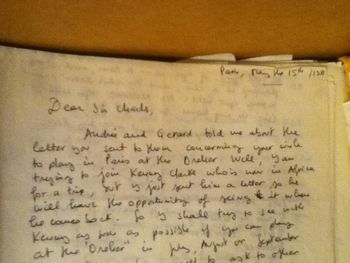 Paris, May the 15th /
Dear Sir Charles,
Andrée and Gerard told me about the
letter you sent to them concerning your wish
to play in Paris at the Dreher Well, I am
trying to join Kenny Clarke who is now in Africa
for a trip, but I just sent him a letter so he
will have the opportunity of seeing it when
he comes back. So I shall try to see with
Kenny as soon as possible if you can play
at the "Dreher" in July, August or September
to ask to other